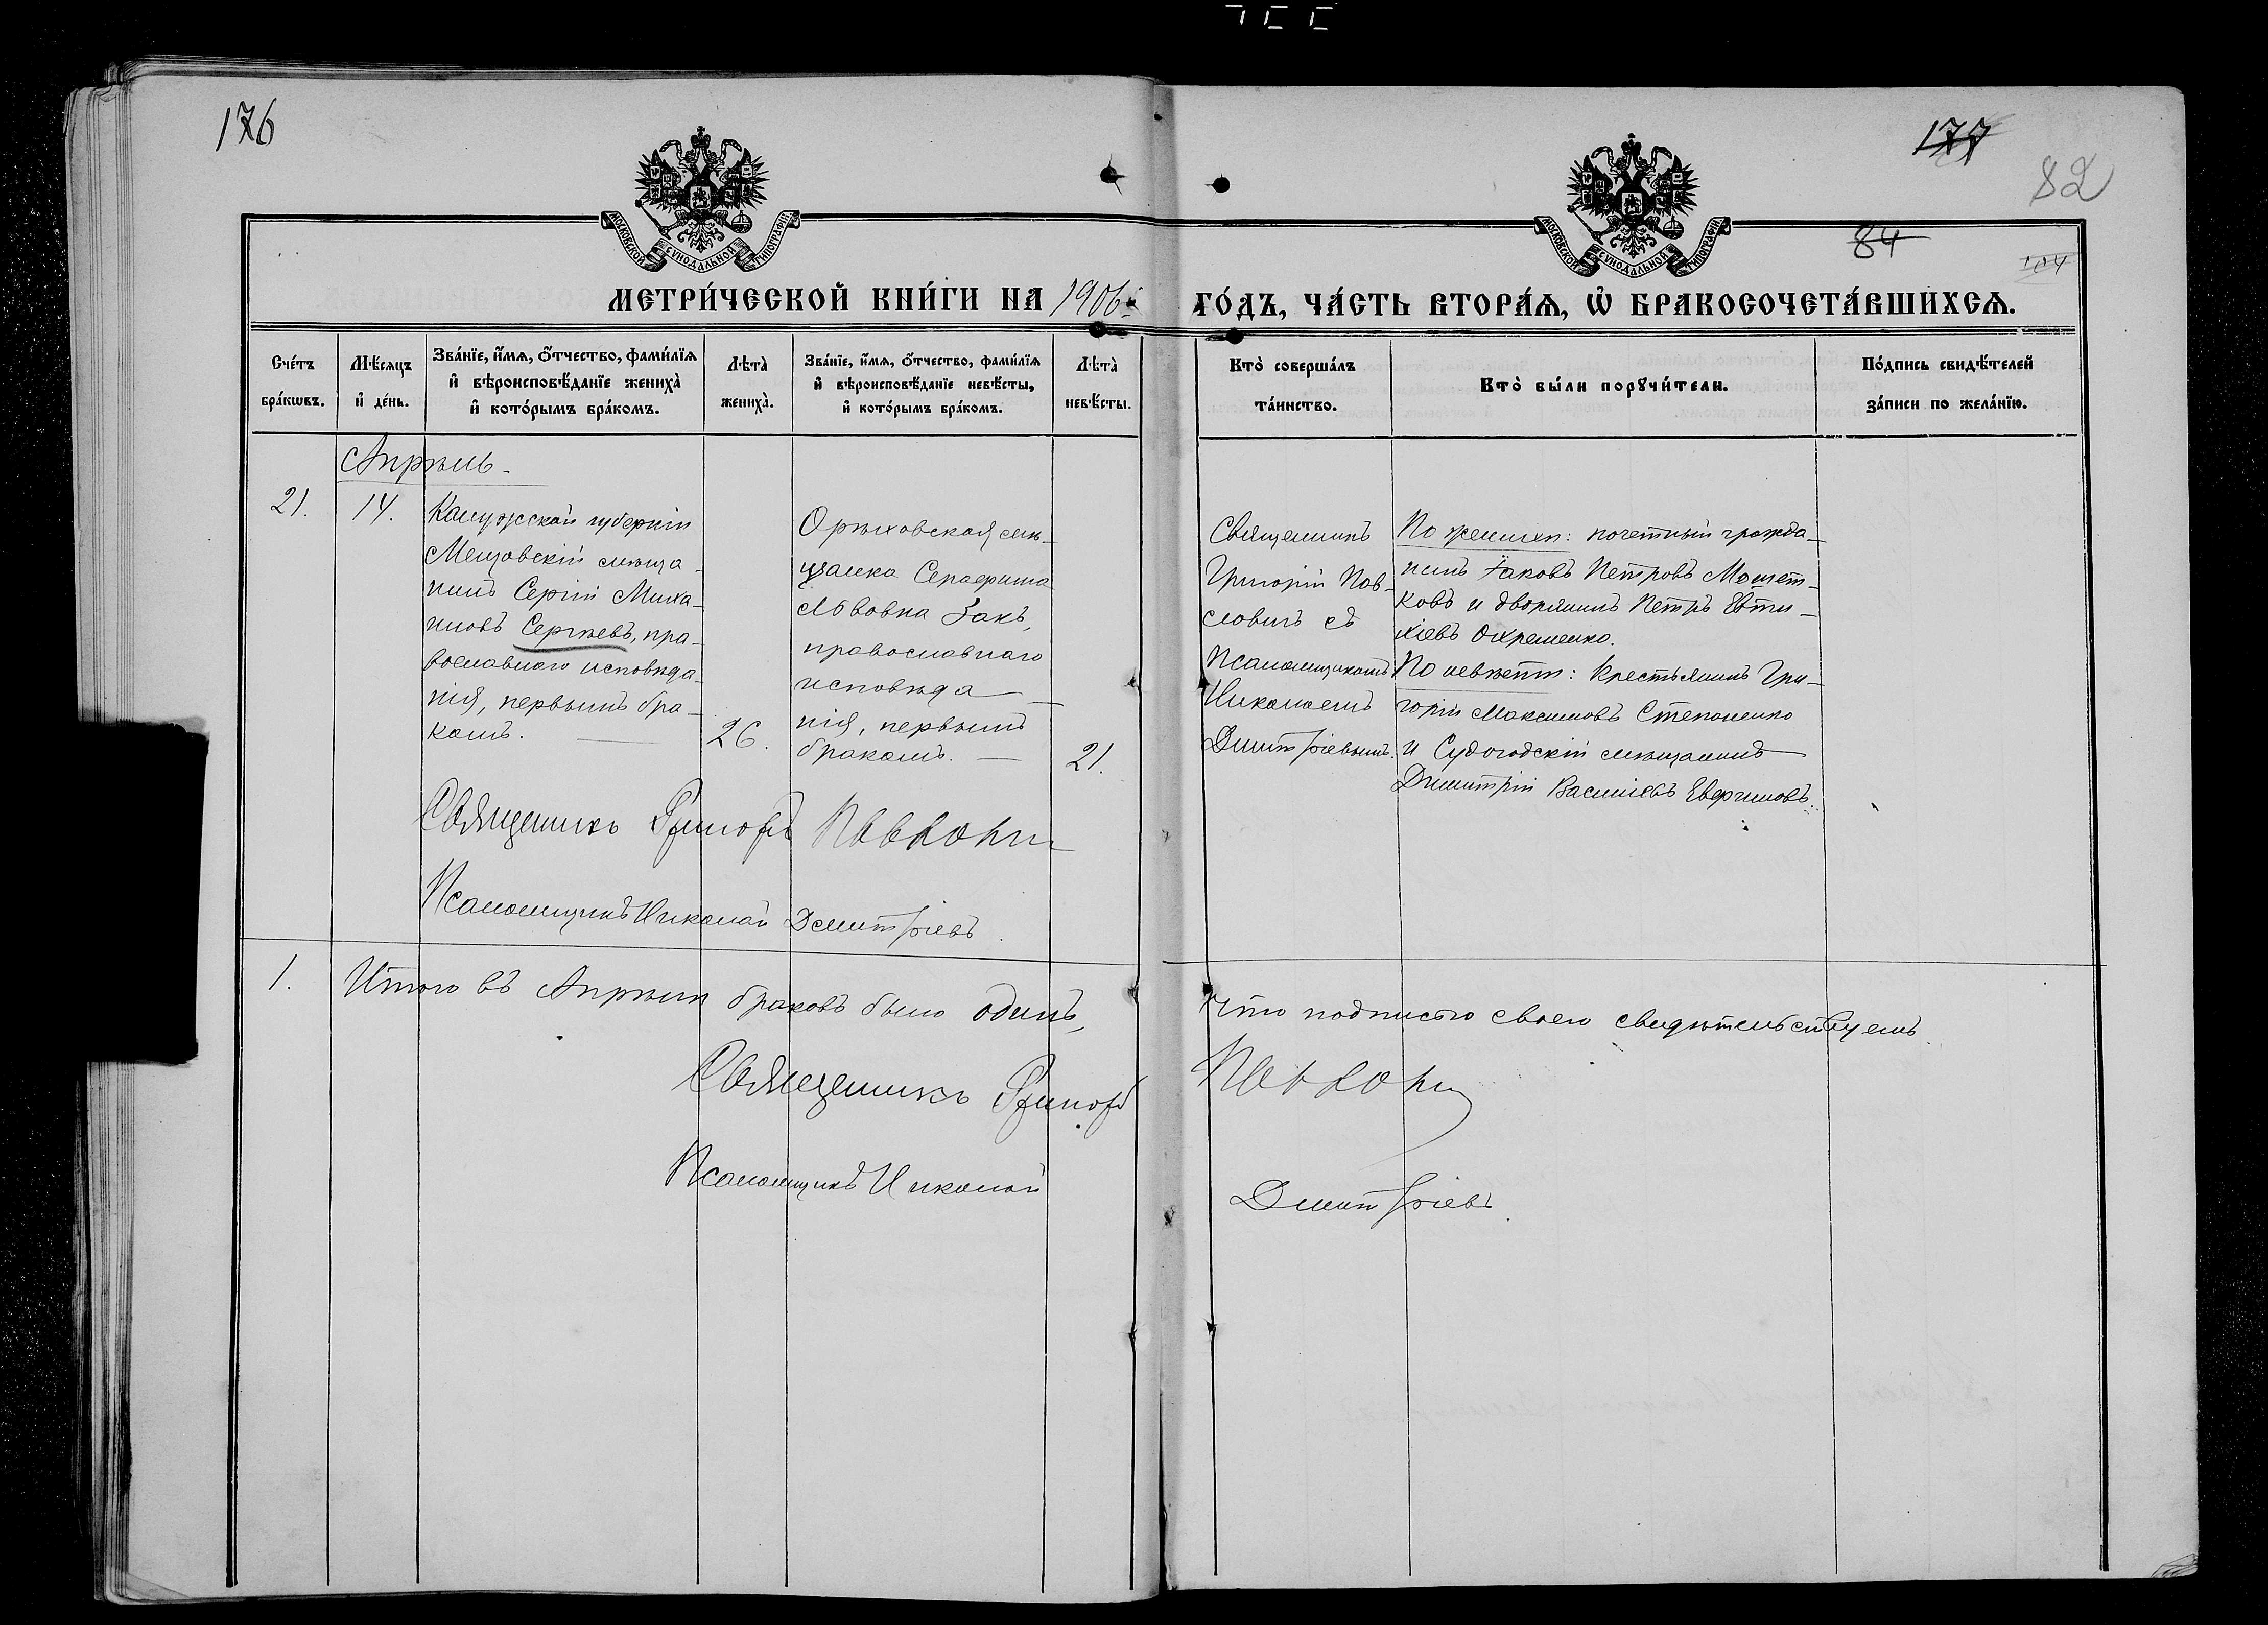 176
177
82
84
104
МОСКОВСКОЙ СѴНОДАЛЬНОЙ ТИПОГРАФІИ
МОСКОВСКОЙ СѴНОДАЛЬНОЙ ТИПОГРАФІИ
МЕТРИ́ЧЕСКОЙ КНИ́ГИ НА 1906 ГО́ДЪ, ЧА́СТЬ ВТОРА́Ѧ, Ѽ БРАКОСОЧЕТА́ВШИХСѦ.
Сче́тъ
бра́кѡвъ.
Мѣ́сѧцъ
и҆ де́нь.
Зва́нїе, и҆́мѧ, ѻ҆́тчество, фами́лїѧ
и҆ вѣроисповѣ́данїе жениха̀
и҆ кото́рымъ бра́комъ.
Лѣта̀
жениха̀.
Зва́нїе, и҆́мѧ, ѻ҆́тчество, фами́лїѧ
и҆ вѣроисповѣ́данїе невѣ́сты,
и҆ кото́рымъ бра́комъ.
Лѣта̀
невѣ́сты.
Кто̀ соверша́лъ
та́инство.
Кто̀ бы́ли порꙋчи́тели.
По́дпись свидѣ́телей
за́писи по жела́нїю.
Апрѣль.
21.
14.
Калужской губерніи
Мещовскій мѣща-
нинъ Сергій Миха-
иловъ Сергѣевъ, пра-
вославнаго исповѣда-
нія, первымъ бра-
комъ.
26.
Орѣховская мѣ-
щанка Серафима
Львовна Закъ,
православнаго
исповѣда-
нія, первымъ
бракомъ.
21.
Священникъ
Григорій Пав-
ловичъ съ
псаломщикомъ
Николаемъ
Дмитріевымъ.
По женихѣ: почетный гражда-
нинъ Іаковъ Петровъ
и дворянинъ Петръ Евти-
хіевъ Охременко.
По невѣстѣ: крестьянинъ Гри-
горій Максимовъ Степаненко
и Судогодскій мѣщанинъ
Димитрій Васильевъ
Священникъ Григорій
Псаломщикъ Николай Дмитріевъ.
1. Итого въ Апрѣлѣ браковъ было одинъ, что подписью своею свидѣтельствуемъ
Священникъ Григорій
Псаломщикъ Николай Дмитріевъ.